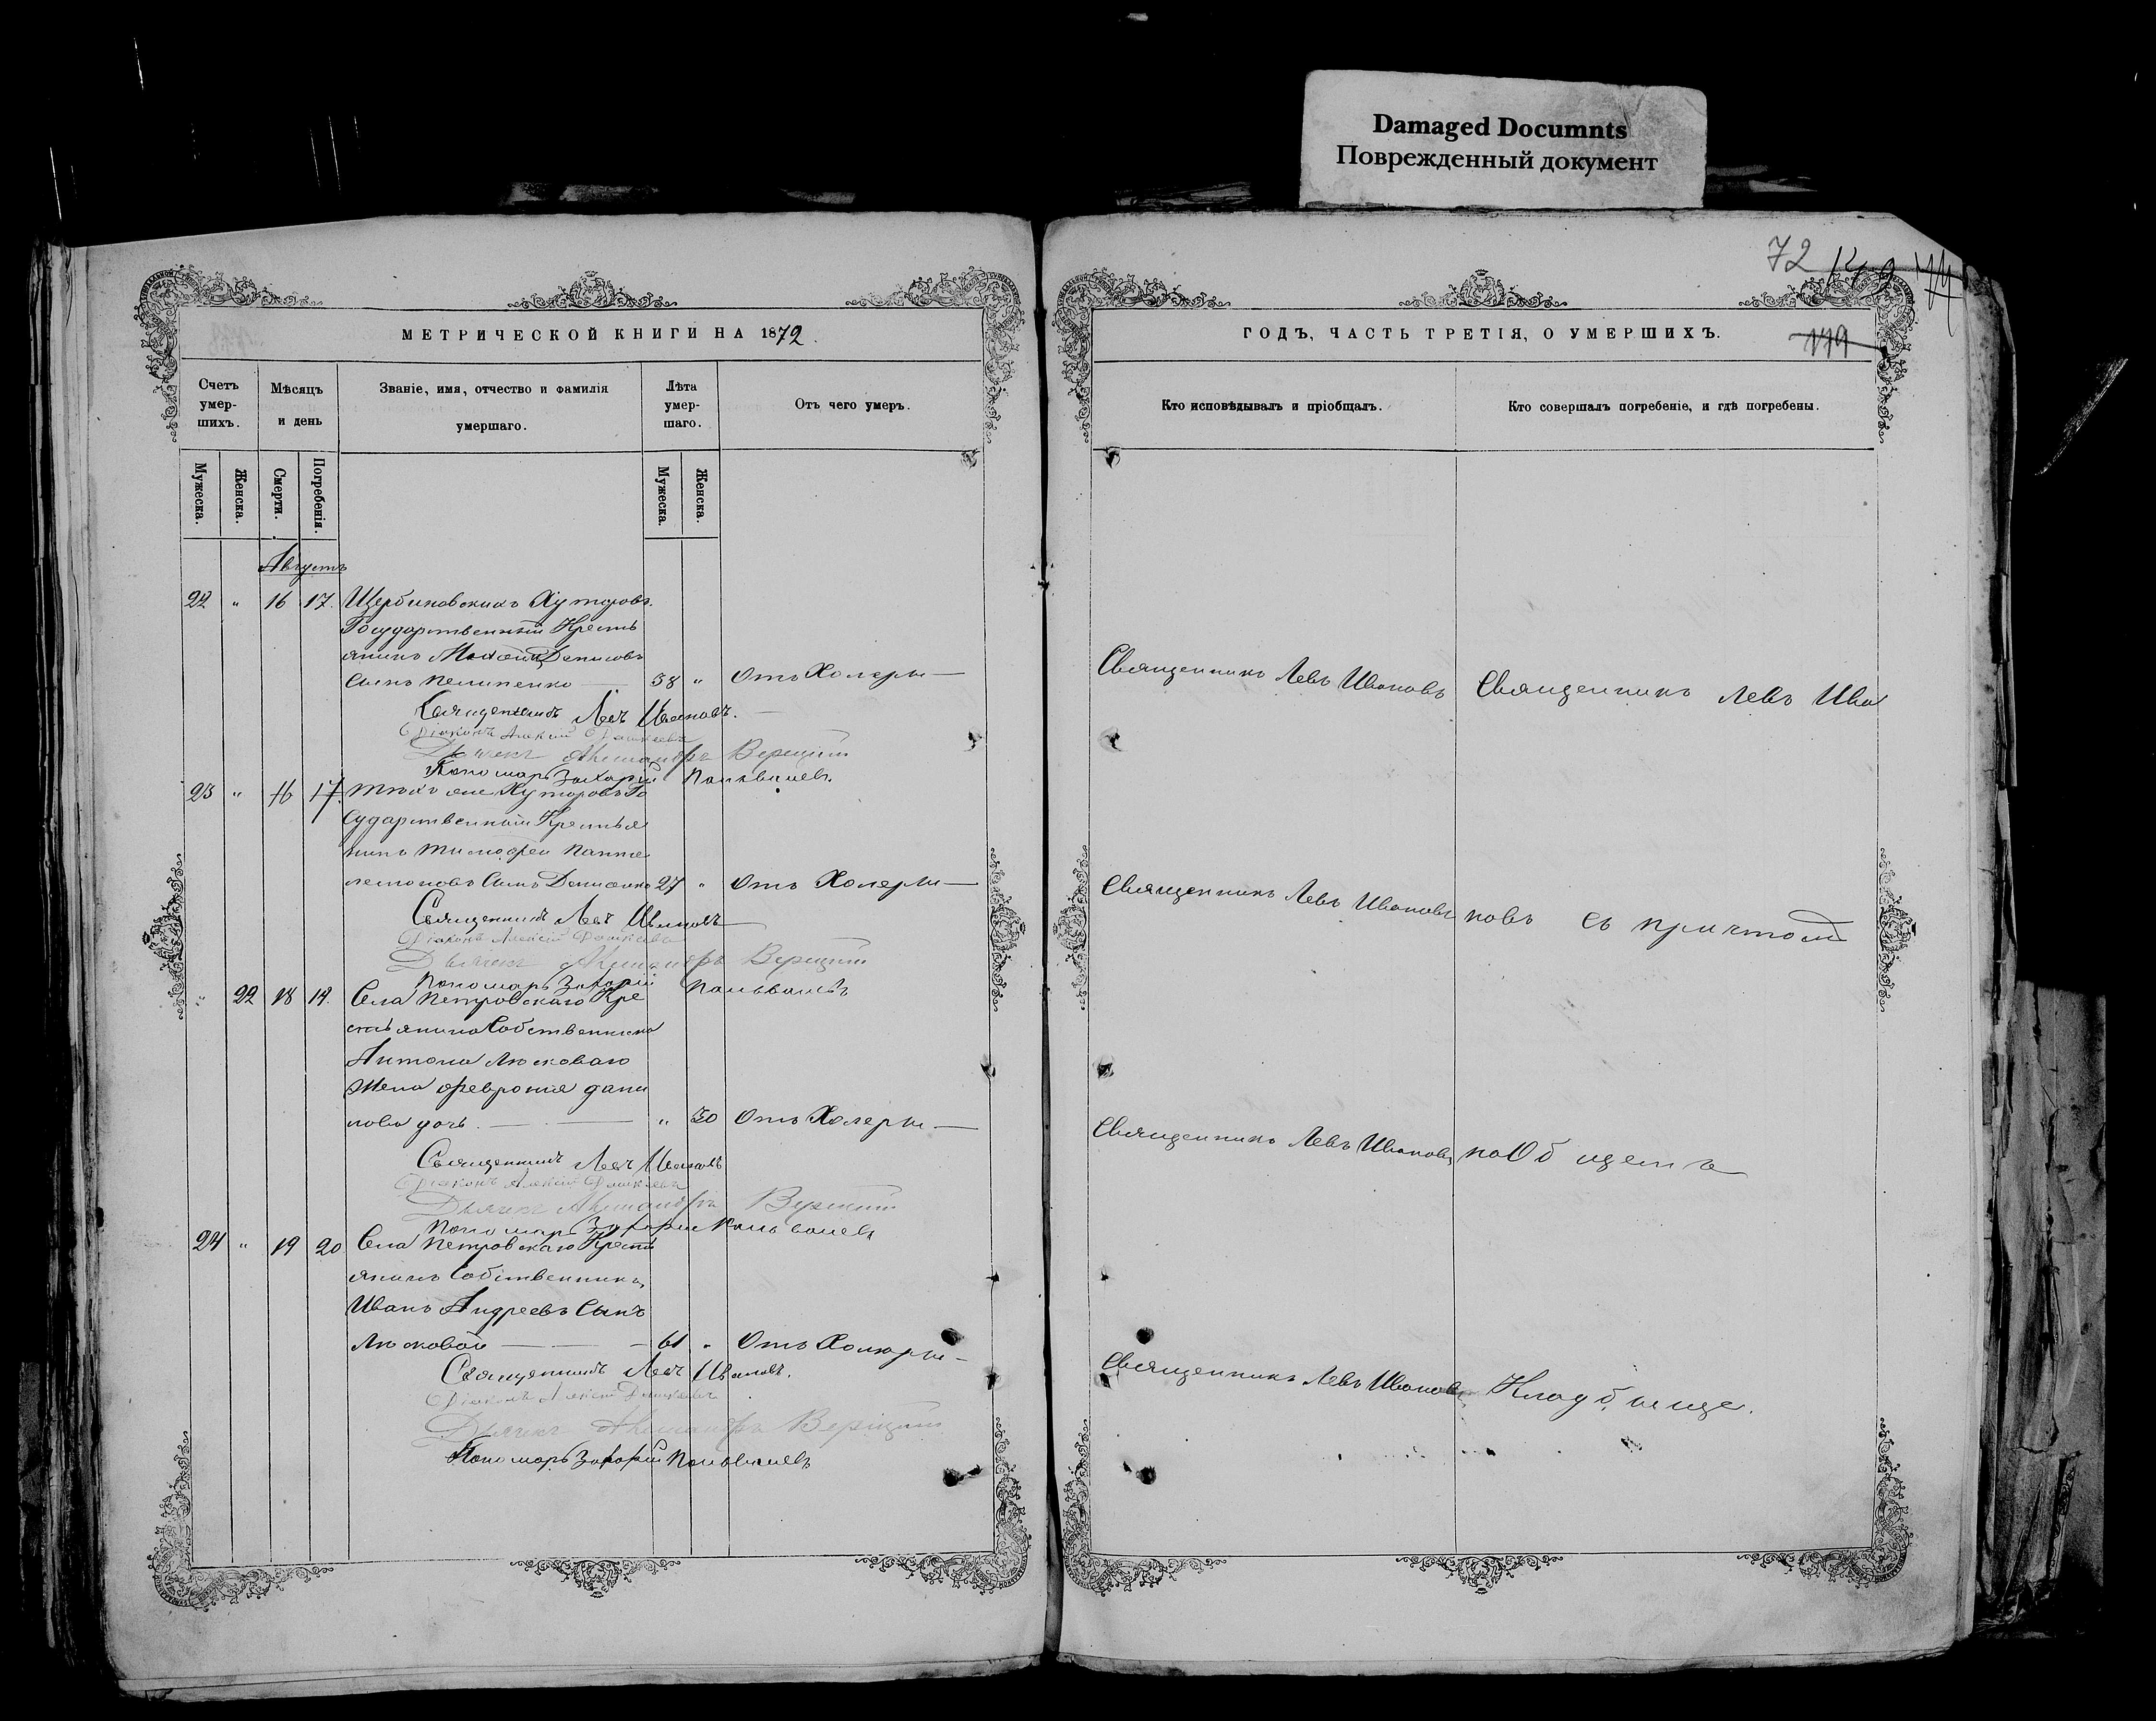 Damaged Documnts
Поврежденный документ
72
МЕТРИЧЕСКОЙ КНИГИ НА 1872.
Счетъ умер-шихъ.
Мѣсяцъ и день
Званіе, имя, отчество и фамилія умершаго.
Лѣта умер-шаго.
Отъ чего умеръ.
Мужеска.
Женска.
Смерти.
Погребенія.
Мужеска.
Женска.
Августъ
22 " 16 17. Щербиновскихъ Хуторовъ
Государственный Кресть
янинъ Денисовъ
Сынъ Пелипенко — 38 " Отъ Холеры —
Священникъ Левъ Ивановъ.
Діаконъ Алексій
Дьячекъ Александръ
Пономарь Захарій
23 " 16 17. Тѣхъ же Хуторовъ Го
сударственный Крестья
нинъ Тимофей Панте
леимоновъ Сынъ Денисенко 27 " Отъ Холеры —
Священникъ Левъ Ивановъ
Діаконъ Алексій
Дьячекъ Александръ
Пономарь Захарій
" 22 18 19. Села Петровскаго Кре
стьянина Собственника
Антона Лысковаго
Жена Февронія Дани
лова дочь. — " 30 Отъ Холеры —
Священникъ Левъ Ивановъ
Діаконъ Алексій
Дьячекъ Александръ
Пономарь Захарій
24 " 19 20 Села Петровскаго Кресть
янинъ Собственникъ
Иванъ Андреевъ Сынъ
Лысковой — 61 " Отъ Холеры —
Священникъ Левъ Ивановъ.
Діаконъ Алексій
Дьячекъ Александръ
Пономарь Захарій
ГОДЪ, ЧАСТЬ ТРЕТІЯ, О УМЕРШИХЪ.
Кто исповѣдывалъ и пріобщалъ.
Кто совершалъ погребеніе, и гдѣ погребены.
Священникъ Левъ Ивановъ Священникъ Левъ Ива
Священникъ Левъ Ивановъ новъ съ причтомъ
Священникъ Левъ Ивановъ на Общемъ
Священникъ Левъ Ивановъ Кладбище.